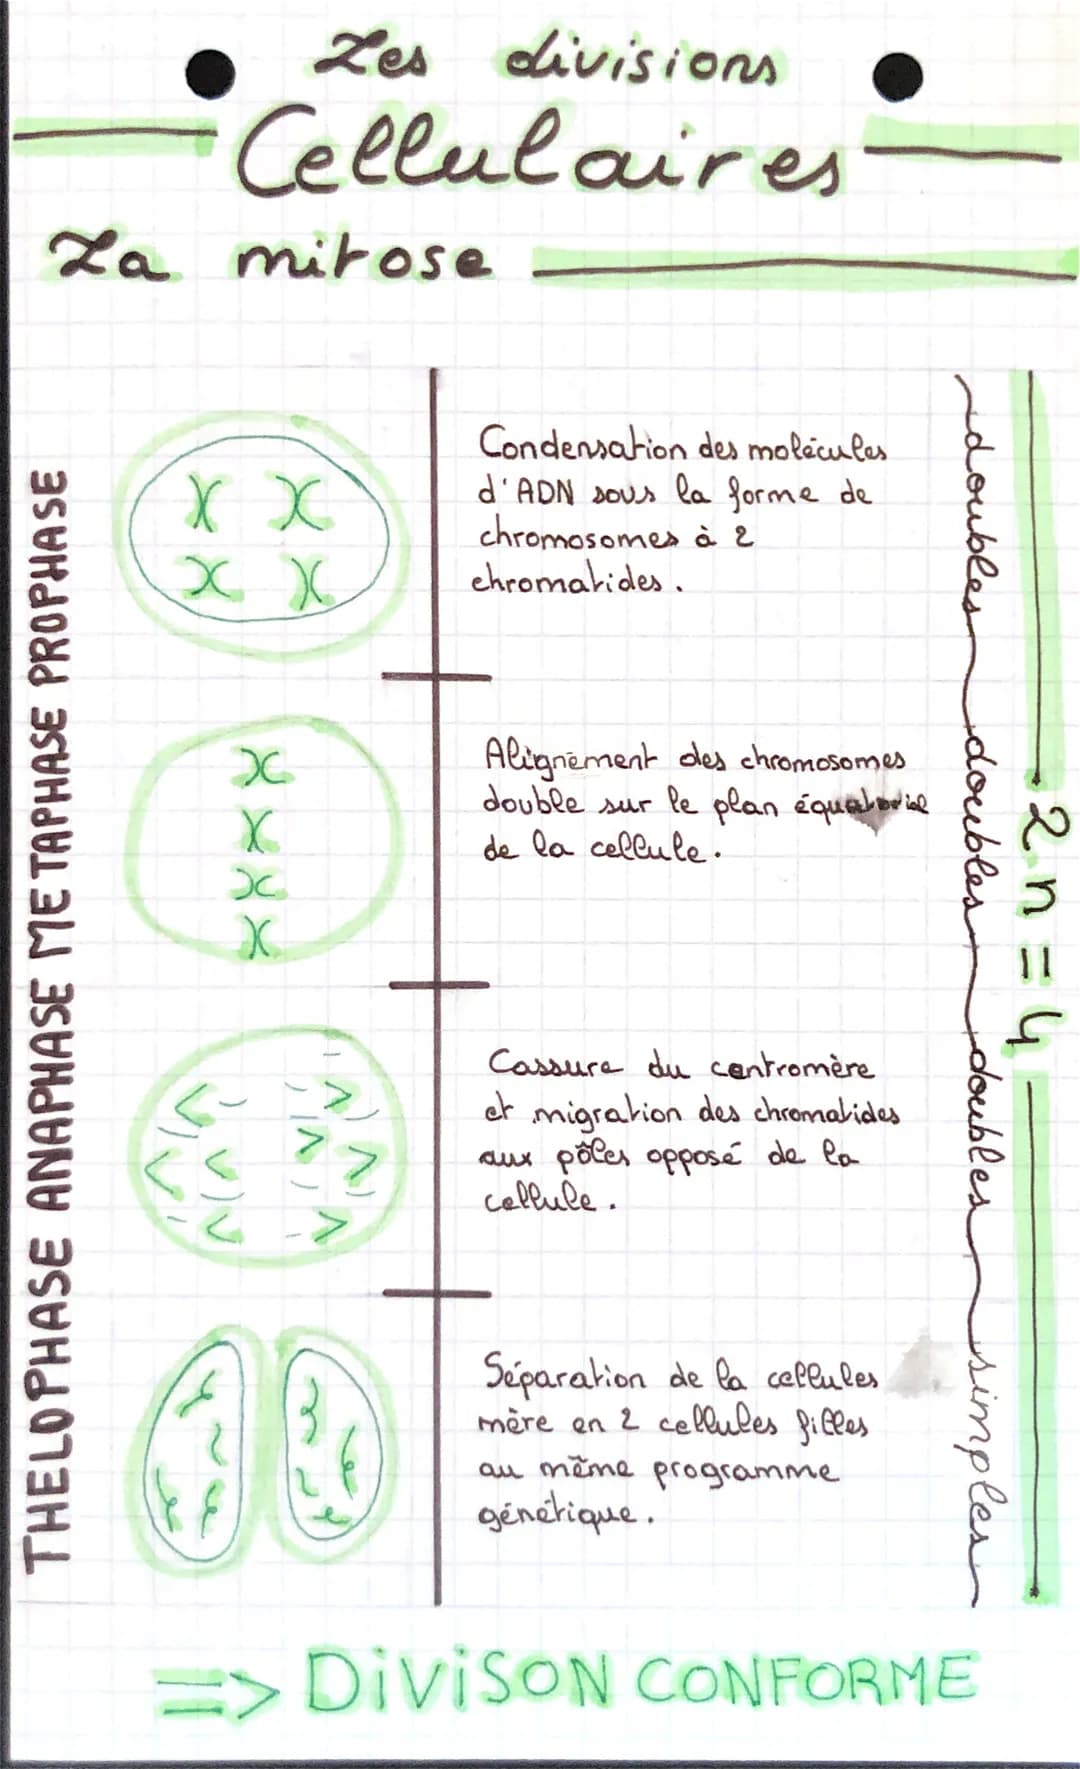 Les divisions
Cellulaires
La mitose
PROPHASE
Condensation des molécules
d'ADN sous la forme de
chromosomes à 2
chromatides.
doubles
METAPHASE
Alignement des chromosomes
double sur le plan équatorial
de la cellule.
doubles
ANAPHASE
Cassure du centromère
et migration des chromatides
aux pôles opposé de la
cellule.
doubles
THELOPHASE
Séparation de la cellules
mère en 2 cellules filles
au même programme
génétique.
simples
2n = 4
=> DiViSON CONFORME